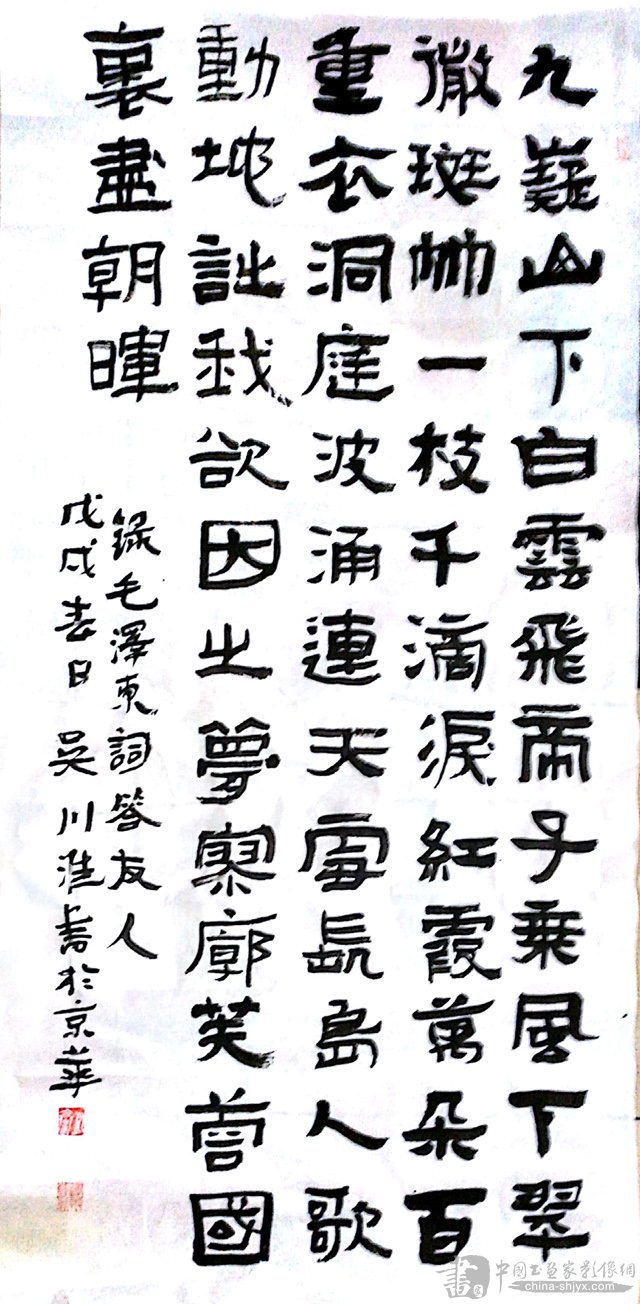 九嶷山下白雲飛帝子乘風下翠
微斑竹一枝千滴淚紅霞萬朵百
重衣洞庭波涌連天雪長島人歌
動地詩我欲因之夢寥廓芙蓉國
裏盡朝暉
錄毛澤東詞答友人
戊戌春日 吳川淮書於京華
書
中國书畫家影像網
china-shjyx.com